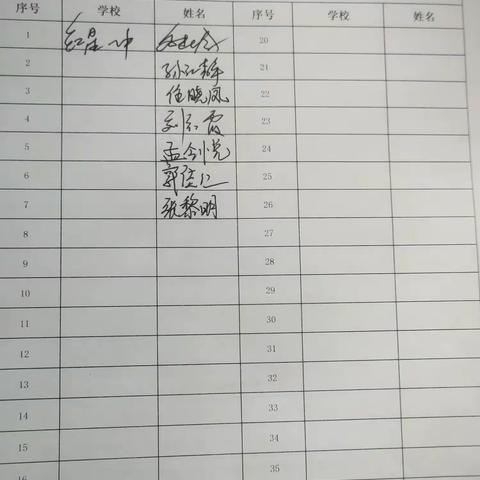 序号 学校 姓名 序号 学校 姓名
1 红星小中 20
2 孙红静 21
3 任晓凤 22
4 刘云霞 23
5 孟令悦 24
6 25
7 张黎明 26
8 27
9 28
10 29
11 30
12 31
13 32
14 33
15 34
16 35